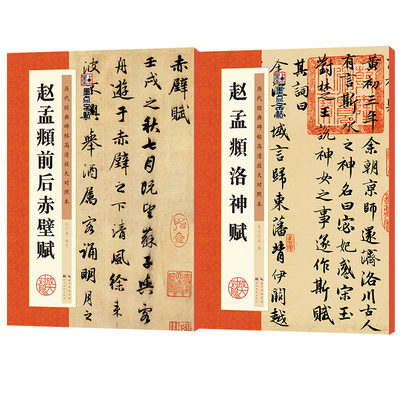 历代经典碑帖高清放大对照本
墨点字帖
赵孟頫前后赤壁赋
赤壁賦
壬戌之秋七月既望蘇子與客
舟遊于赤壁之下清風徐來
波不興舉酒屬客誦明月之
历代经典碑帖高清放大对照本
墨点字帖
赵孟頫洛神赋
黄初三年余朝京師還濟洛川古人
有言斯水之神名曰宓妃感宋玉
對楚王說神女之事遂作斯
其詞曰
域言歸東藩背伊闕越